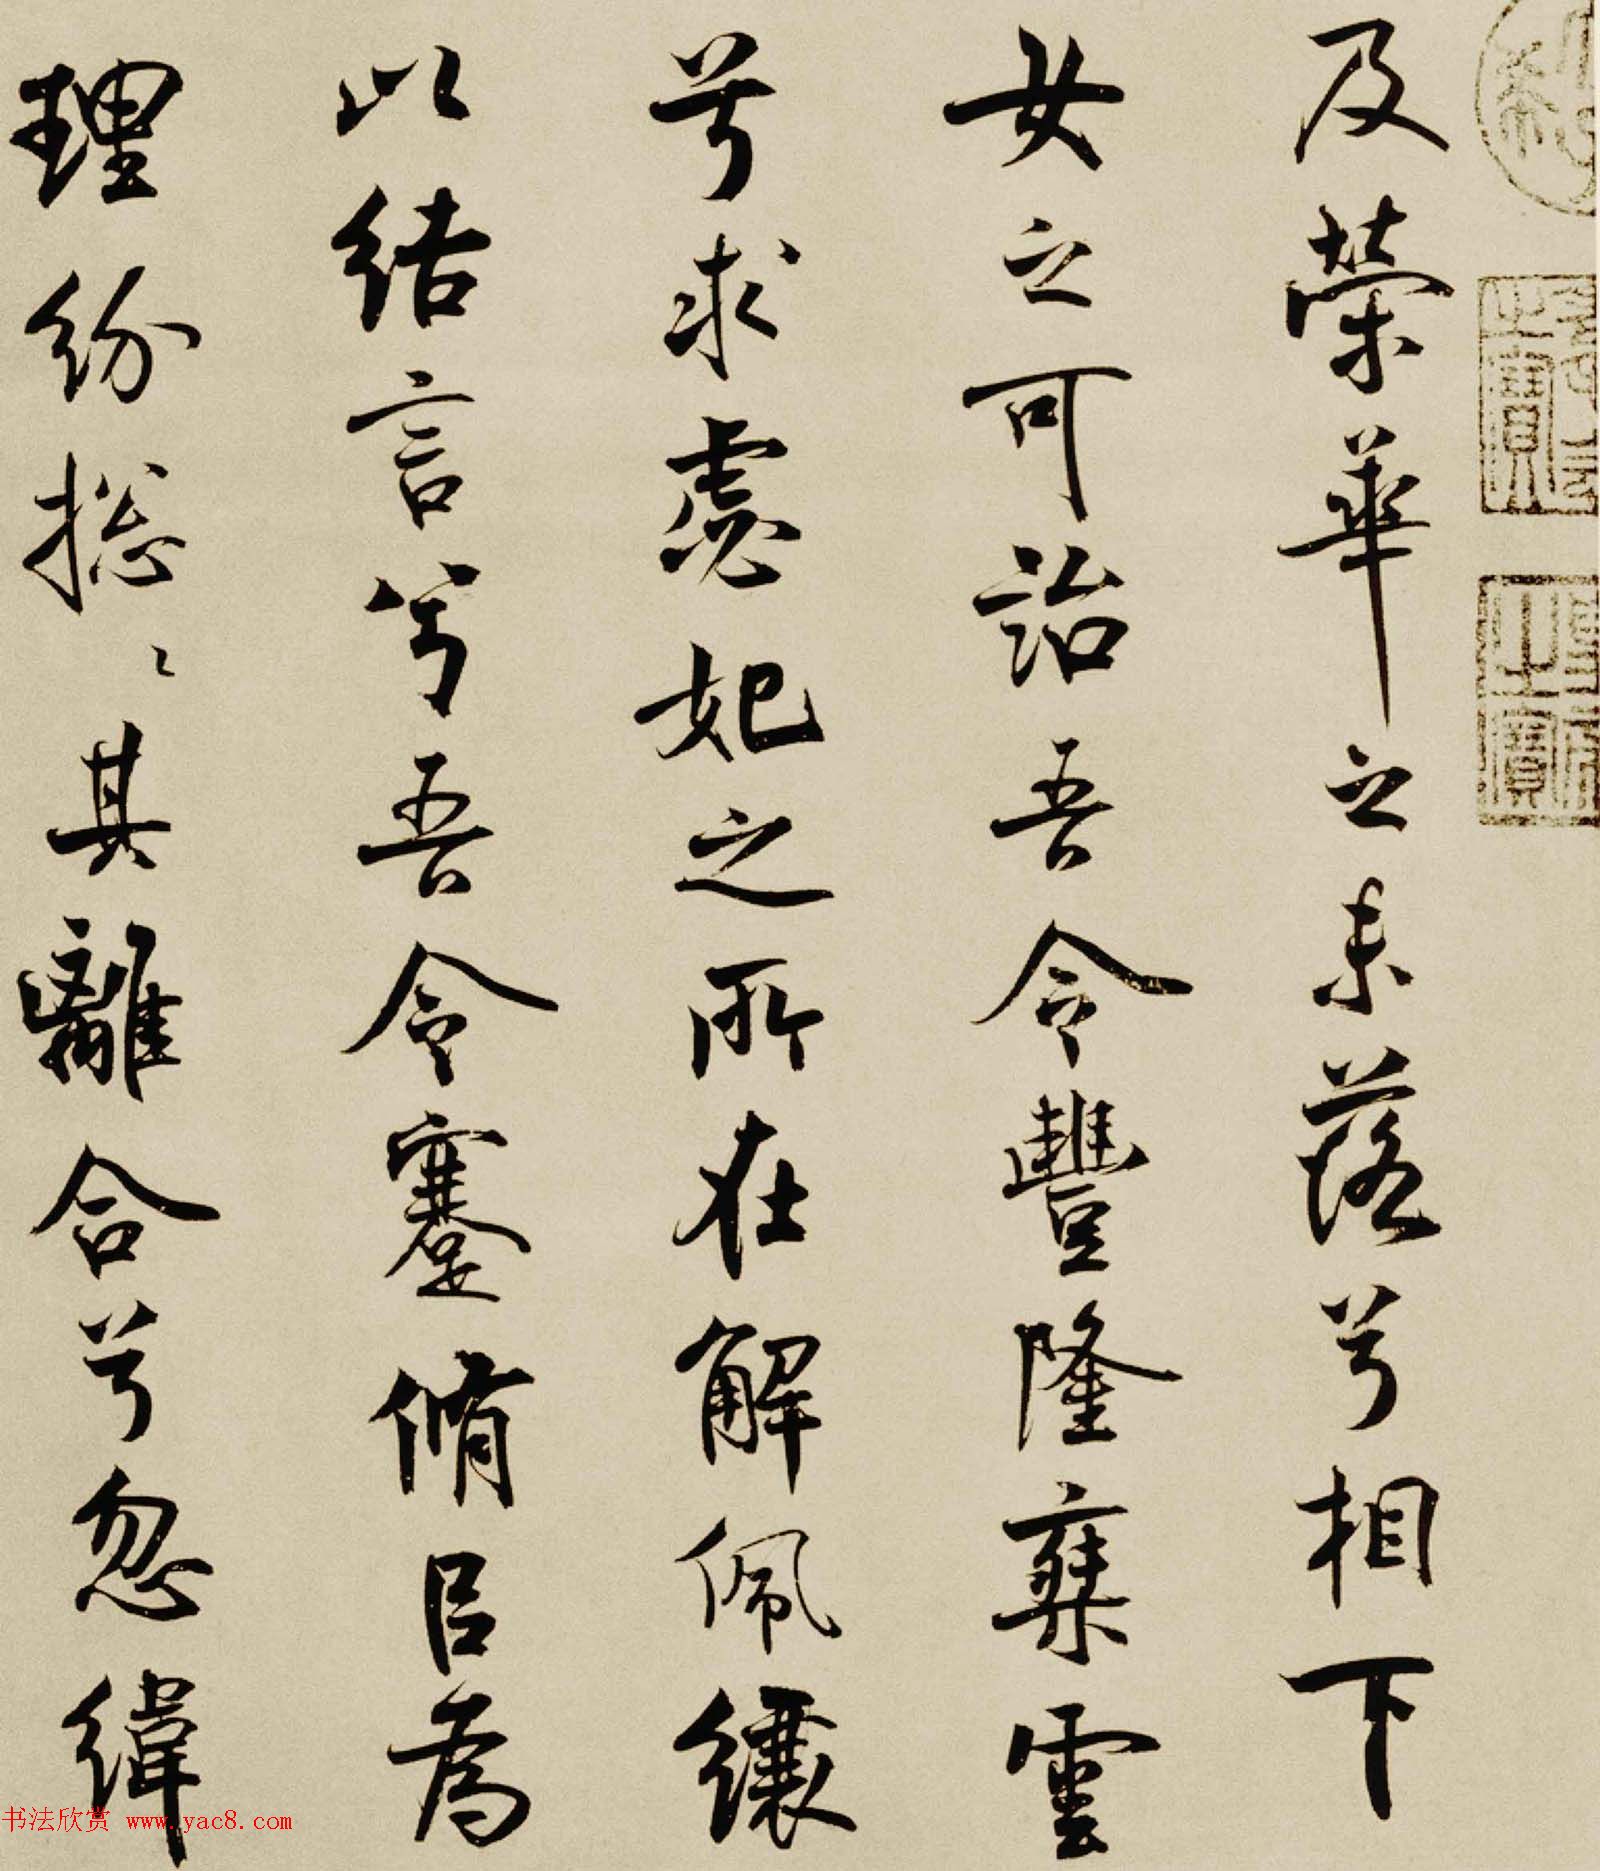 及荣華之未落兮相下
女之可詒吾令豐隆椉雲
兮求虙妃之所在解佩纕
以結言兮吾令蹇脩㠯為
理紛揔〻其離合兮忽緯
书法欣赏 www.yac8.com